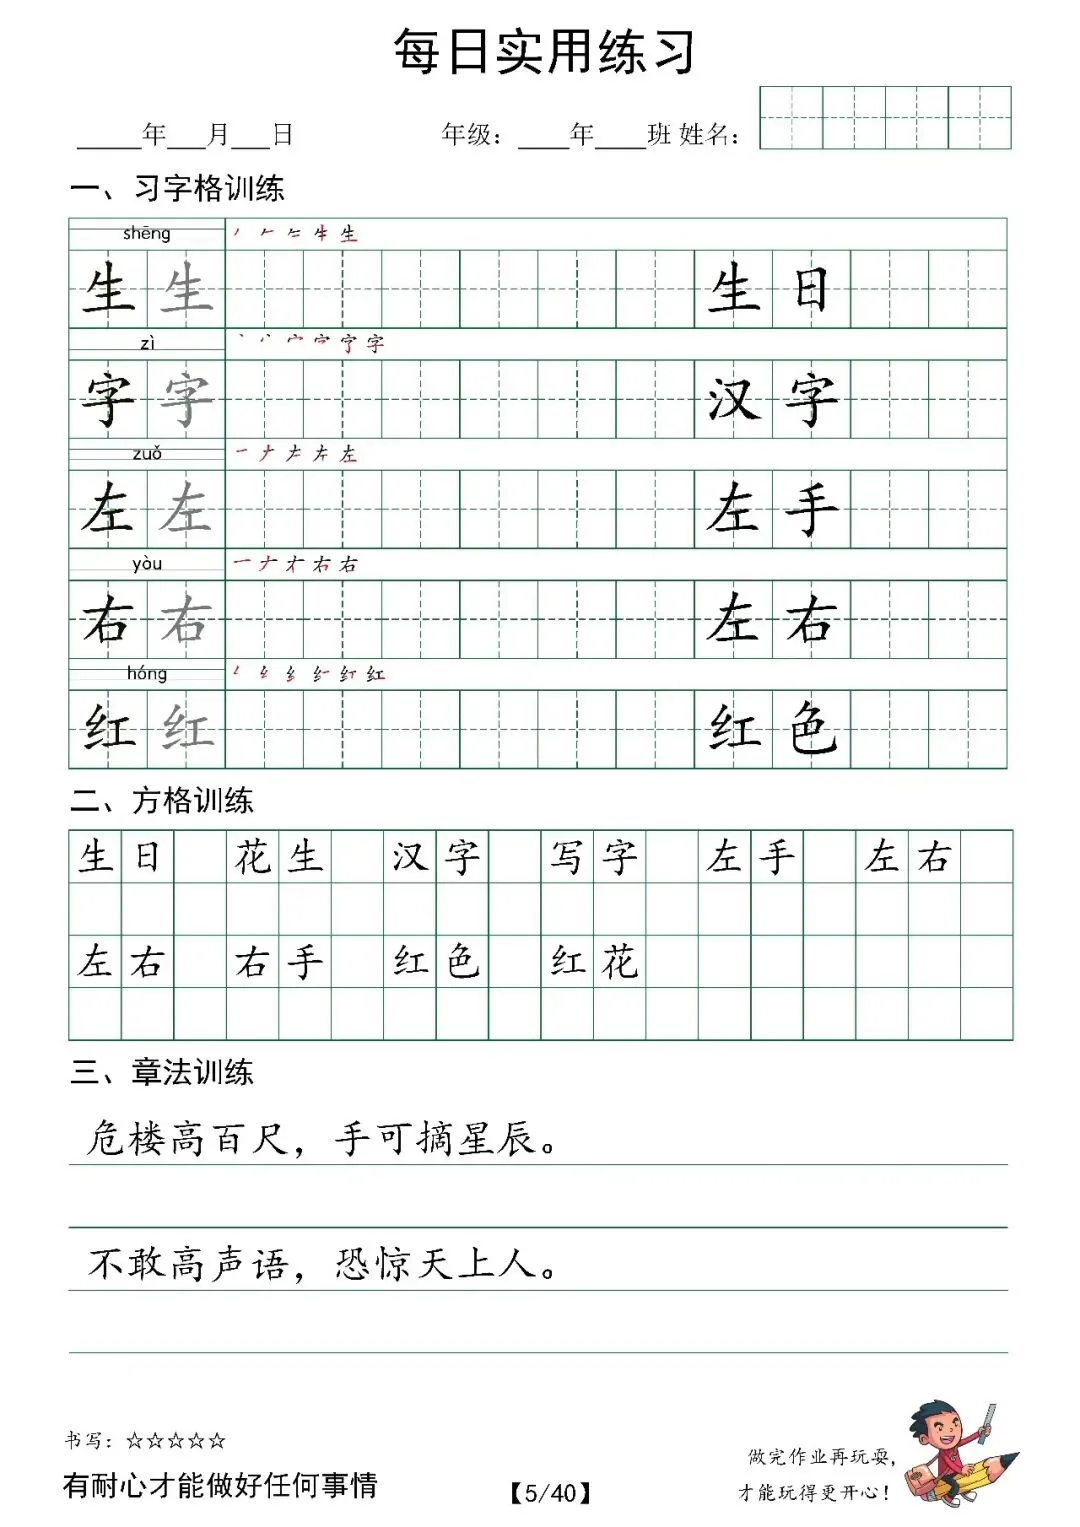 每日实用练习
_____年___月___日 年级：____年____班 姓名：
一、习字格训练
shēng
生 生 生 日
zì
字 字 汉 字
zuǒ
左 左 左 手
yòu
右 右 左 右
hóng
红 红 红 色
二、方格训练
生 日 花 生 汉 字 写 字 左 手 左 右
左 右 右 手 红 色 红 花
三、章法训练
危楼高百尺，手可摘星辰。
不敢高声语，恐惊天上人。
书写：☆☆☆☆☆
有耐心才能做好任何事情
【5/40】
做完作业再玩耍，
才能玩得更开心！